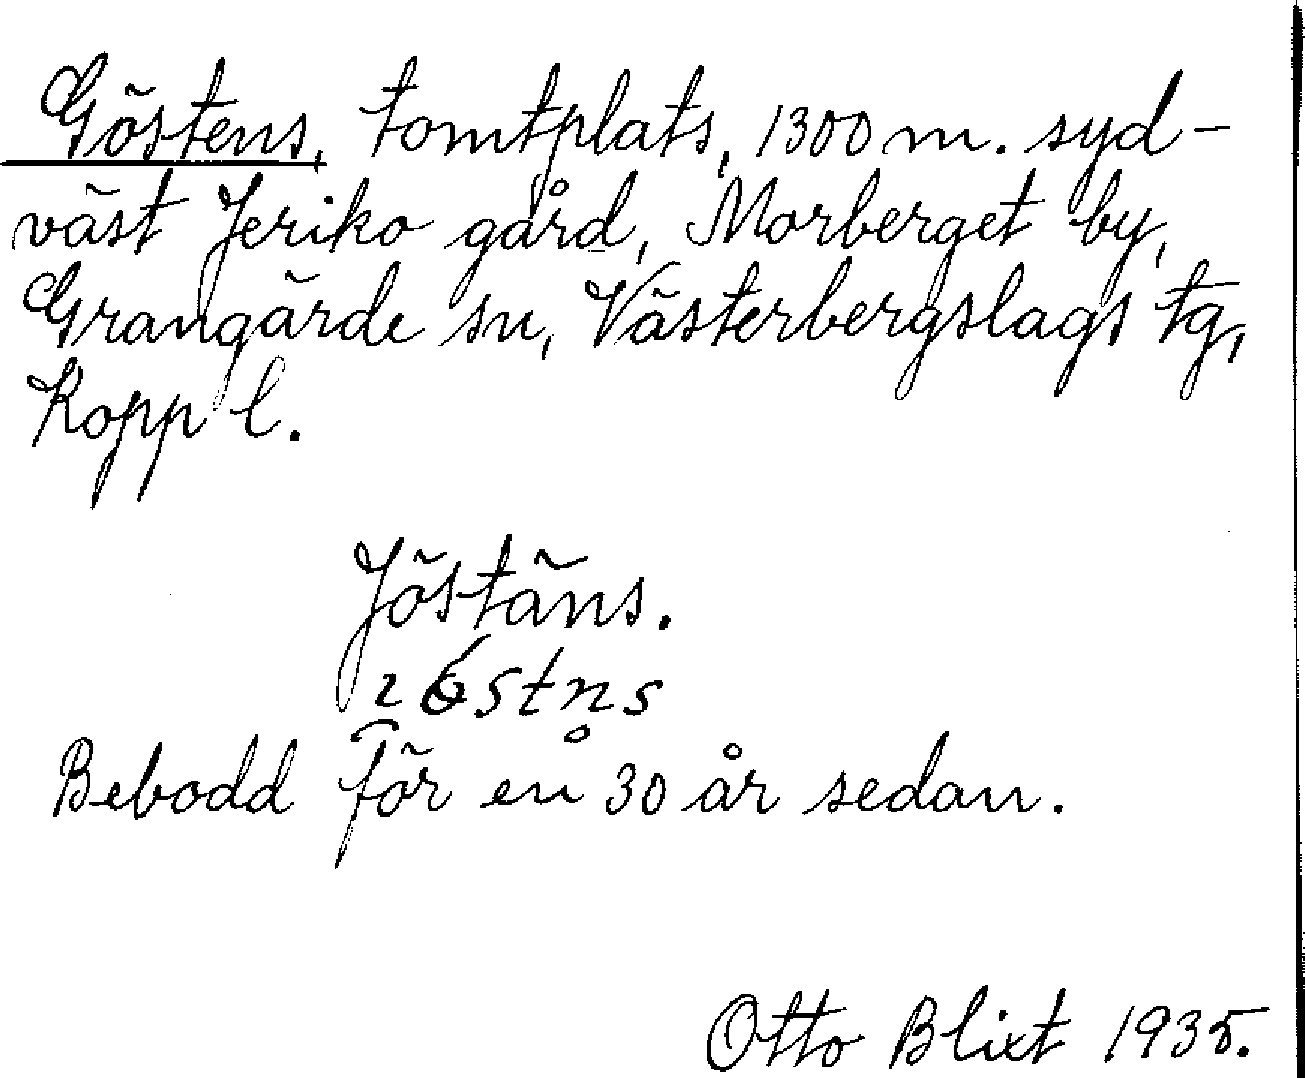 Göstens, tomtplats, 1300 m. syd-
väst Jeriko gård, Morberget by,
Grangärde sn, Västerbergslags tg,
Kopp l.
Jöstäns.
Bebodd för en 30 år sedan.
Otto Blixt 1935.